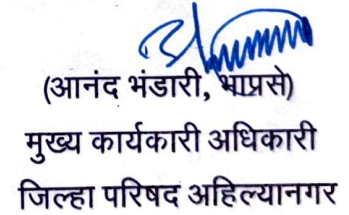 (आनंद भंडारी, भाप्रसे)
मुख्य कार्यकारी अधिकारी
जिल्हा परिषद अहिल्यानगर